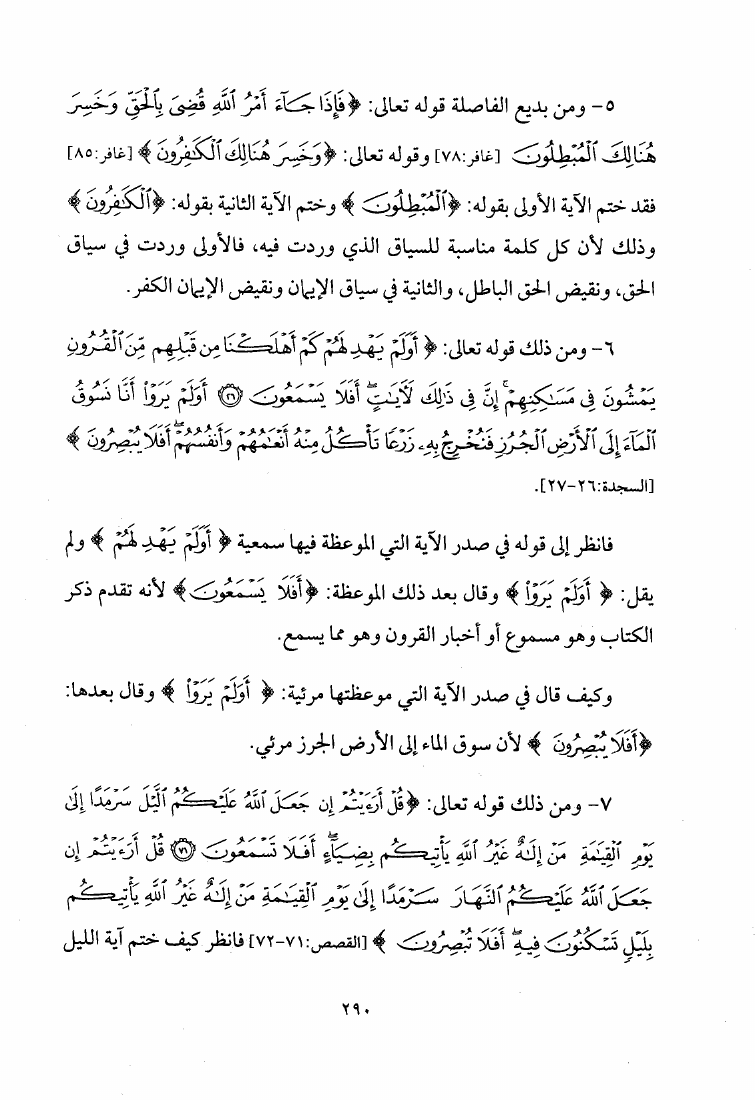 ٥- ومن بديع الفاصلة قوله تعالى: ﴿فَإِذَا جَآءَ أَمْرُ ٱللَّهِ قُضِىَ بِٱلْحَقِّ وَخَسِرَ
هُنَالِكَ ٱلْمُبْطِلُونَ﴾ [غافر:٧٨] وقوله تعالى: ﴿وَخَسِرَ هُنَالِكَ ٱلْكَٰفِرُونَ﴾ [غافر:٨٥]
فقد ختم الآية الأولى بقوله: ﴿ٱلْمُبْطِلُونَ﴾ وختم الآية الثانية بقوله: ﴿ٱلْكَٰفِرُونَ﴾
وذلك لأن كل كلمة مناسبة للسياق الذي وردت فيه، فالأولى وردت في سياق
الحق، ونقيض الحق الباطل، والثانية في سياق الإيمان ونقيض الإيمان الكفر.
٦- ومن ذلك قوله تعالى: ﴿أَوَلَمْ يَهْدِ لَهُمْ كَمْ أَهْلَكْنَا مِن قَبْلِهِم مِّنَ ٱلْقُرُونِ
يَمْشُونَ فِى مَسَٰكِنِهِمْ ۚ إِنَّ فِى ذَٰلِكَ لَأٓيَٰتٍ ۖ أَفَلَا يَسْمَعُونَ ۝٢٦ أَوَلَمْ يَرَوْا۟ أَنَّا نَسُوقُ
ٱلْمَآءَ إِلَى ٱلْأَرْضِ ٱلْجُرُزِ فَنُخْرِجُ بِهِۦ زَرْعًا تَأْكُلُ مِنْهُ أَنْعَٰمُهُمْ وَأَنفُسُهُمْ ۖ أَفَلَا يُبْصِرُونَ﴾
[السجدة:٢٦-٢٧].
فانظر إلى قوله في صدر الآية التي الموعظة فيها سمعية ﴿أَوَلَمْ يَهْدِ لَهُمْ﴾ ولم
يقل: ﴿أَوَلَمْ يَرَوْا۟﴾ وقال بعد ذلك الموعظة: ﴿أَفَلَا يَسْمَعُونَ﴾ لأنه تقدم ذكر
الكتاب وهو مسموع أو أخبار القرون وهو مما يسمع.
وكيف قال في صدر الآية التي موعظتها مرئية: ﴿أَوَلَمْ يَرَوْا۟﴾ وقال بعدها:
﴿أَفَلَا يُبْصِرُونَ﴾ لأن سوق الماء إلى الأرض الجرز مرئي.
٧- ومن ذلك قوله تعالى: ﴿قُلْ أَرَءَيْتُمْ إِن جَعَلَ ٱللَّهُ عَلَيْكُمُ ٱلَّيْلَ سَرْمَدًا إِلَىٰ
يَوْمِ ٱلْقِيَٰمَةِ مَنْ إِلَٰهٌ غَيْرُ ٱللَّهِ يَأْتِيكُم بِضِيَآءٍ ۖ أَفَلَا تَسْمَعُونَ ۝٧١ قُلْ أَرَءَيْتُمْ إِن
جَعَلَ ٱللَّهُ عَلَيْكُمُ ٱلنَّهَارَ سَرْمَدًا إِلَىٰ يَوْمِ ٱلْقِيَٰمَةِ مَنْ إِلَٰهٌ غَيْرُ ٱللَّهِ يَأْتِيكُم
بِلَيْلٍ تَسْكُنُونَ فِيهِ ۖ أَفَلَا تُبْصِرُونَ﴾ [القصص:٧١-٧٢] فانظر كيف ختم آية الليل
٢٩٠